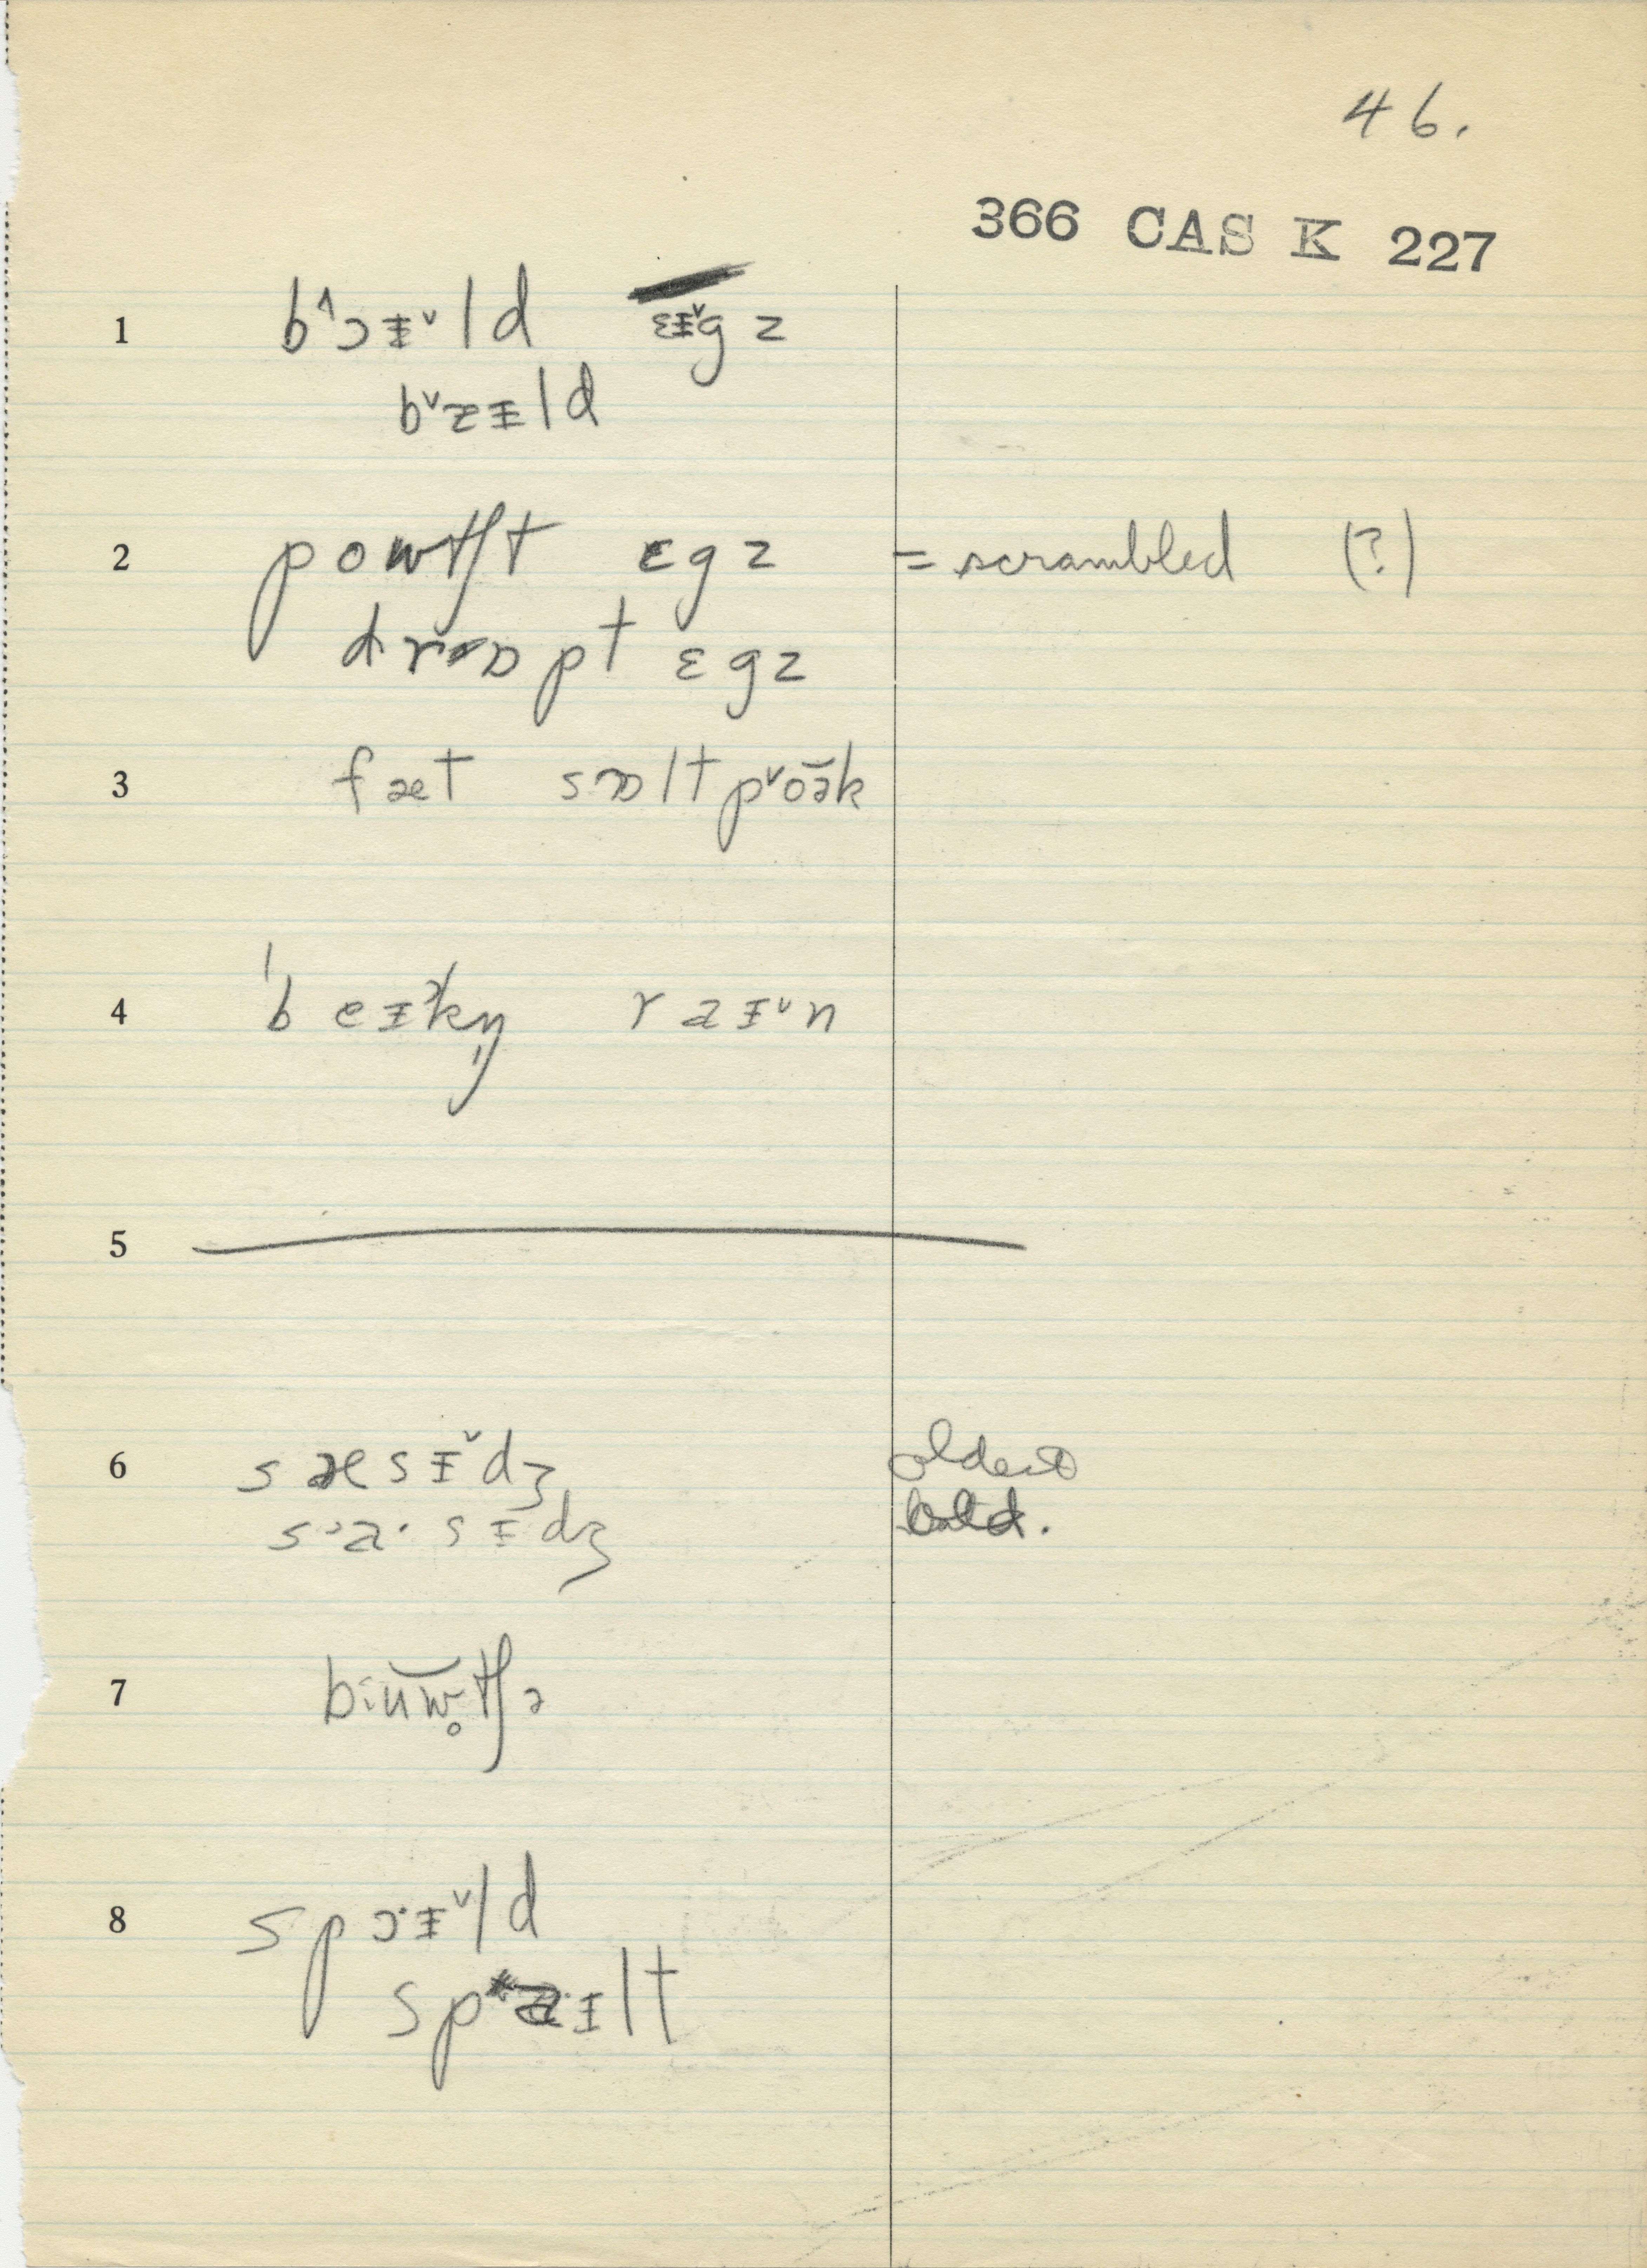 46.
366 CAS K 227
1 b˄ɔɪ˅ld ɛɪ˅gz
b˅ɐɪld
2 powtʃt ɛgz = scrambled (?)
drɒpt ɛgz
3 fæt sɒltp˅oə̆k
4 ˈbeɪkn̩ raɪ˅n
5
6 sæsɪ˅dʒ oldest
s˒a·sɪdʒ
7 bŭw̥tʃə
8 spɔ·ɪ˅ld
ɪlt